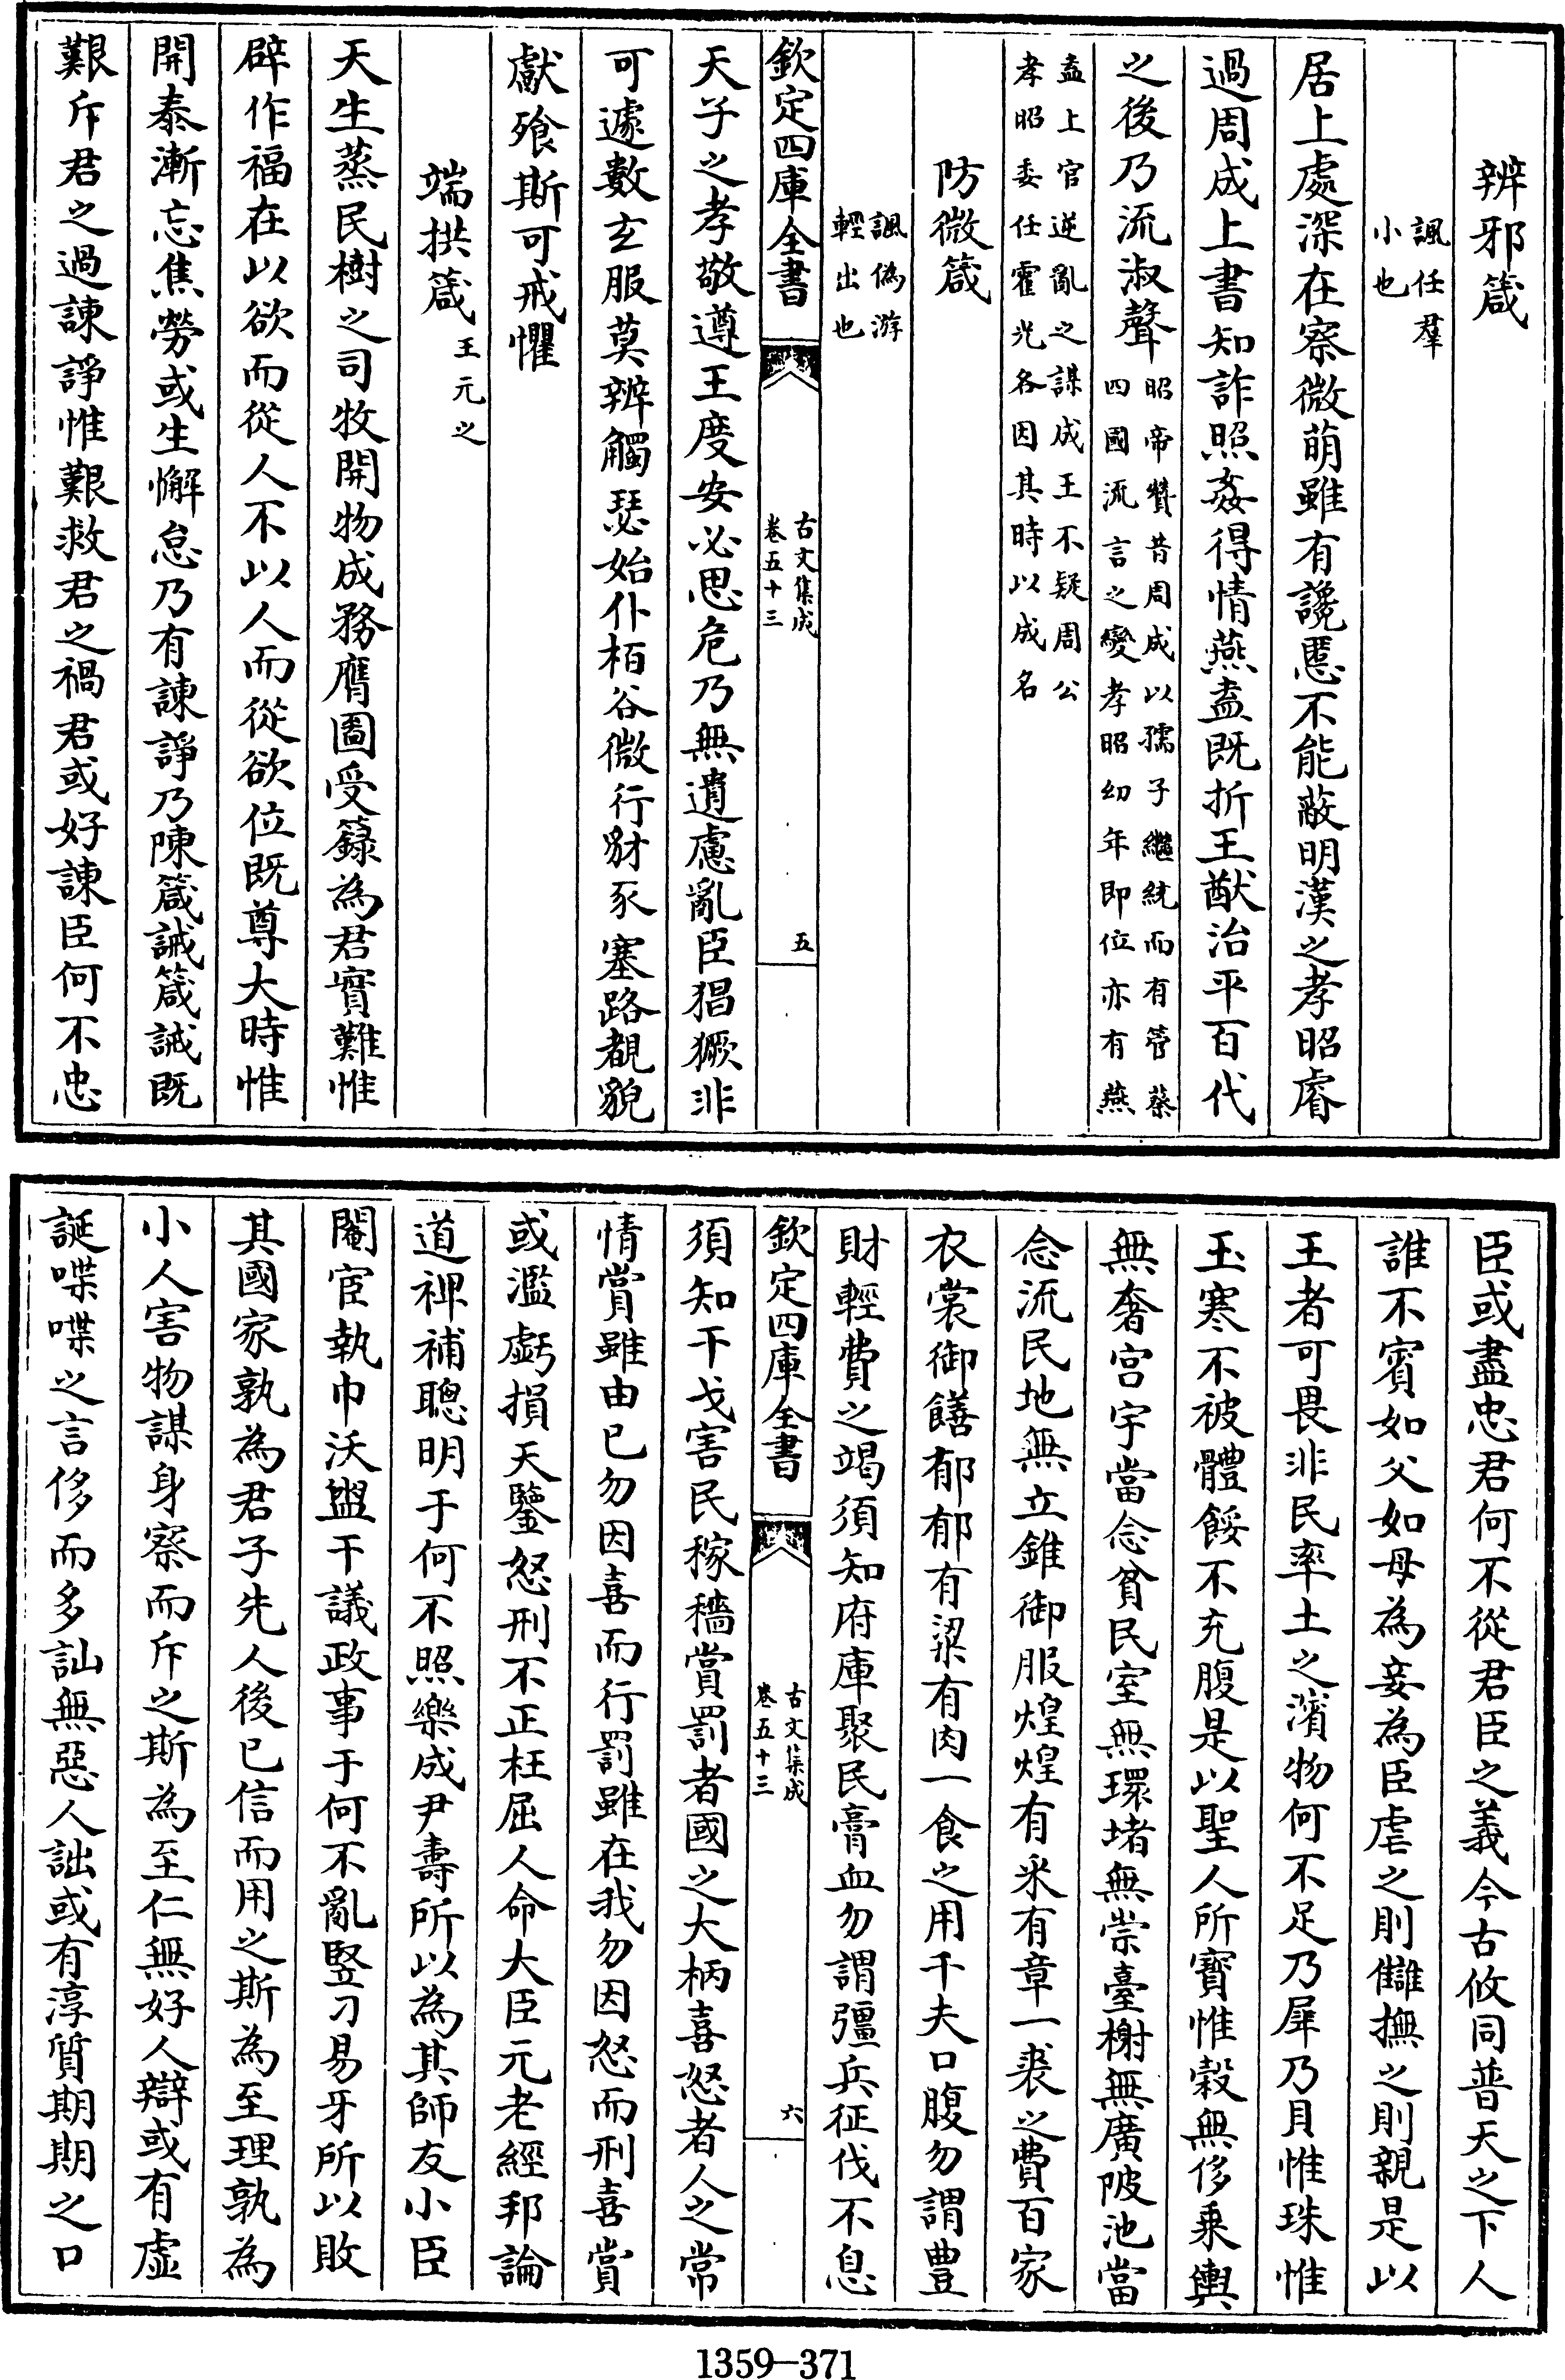 辨邪箴
諷任羣
小也
居上處深在察微萌雖有讒慝不能蔽明漢之孝昭睿
過周成上書知詐照姦得情燕盍既折王猷治平百代
之後乃流淑聲
昭帝贊昔周成以孺子繼統而有管蔡
四國流言之變孝昭幼年即位亦有燕
盍上官逆亂之謀成王不疑周公
孝昭委任霍光各因其時以成名
防微箴
諷偽游
輕出也
欽定四庫全書
古文集成
卷五十三
五
天子之孝敬遵王度安必思危乃無遺慮亂臣猖獗非
可遽數玄服莫辨觸瑟始仆栢谷微行豺豕塞路覩貌
獻飱斯可戒懼
端拱箴
王元之
天生蒸民樹之司牧開物成務膺圖受籙為君實難惟
辟作福在以欲而從人不以人而從欲位既尊大時惟
開泰漸忘焦勞或生懈怠乃有諫諍乃陳箴誡箴誡既
艱斥君之過諫諍惟艱救君之禍君或好諫臣何不忠
臣或盡忠君何不從君臣之義今古攸同普天之下人
誰不賓如父如母為妾為臣虐之則讎撫之則親是以
王者可畏非民率土之濱物何不足乃犀乃貝惟珠惟
玉寒不被體餒不充腹是以聖人所寳惟穀無侈乗輿
無奢宫宇當念貧民室無環堵無崇臺榭無廣陂池當
念流民地無立錐御服煌煌有米有章一裘之費百家
衣裳御饍郁郁有粱有肉一食之用千夫口腹勿謂豊
財輕費之竭須知府庫聚民膏血勿謂彊兵征伐不息
欽定四庫全書
古文集成
卷五十三
六
須知干戈害民稼穡賞罰者國之大柄喜怒者人之常
情賞雖由已勿因喜而行罰雖在我勿因怒而刑喜賞
或濫虧損天鑒怒刑不正枉屈人命大臣元老經邦論
道禆補聰明于何不照樂成尹壽所以為其師友小臣
閹宦執巾沃盥干議政事于何不亂竪刁易牙所以敗
其國家孰為君子先人後已信而用之斯為至理孰為
小人害物謀身察而斥之斯為至仁無好人辯或有虛
誕喋喋之言侈而多訕無惡人詘或有淳質期期之口
1359—371